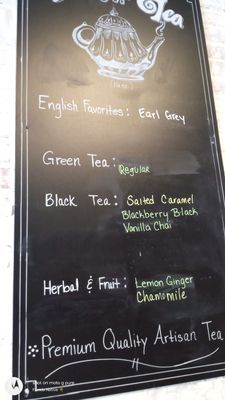 Tea
English Favorites: Earl Grey
Green Tea: Regular
Black Tea: Salted Caramel
Blackberry Black
Vanilla Chai
Herbal & Fruit: Lemon Ginger
Chamomile
Premium Quality Artisan Tea
Shot on moto g pure